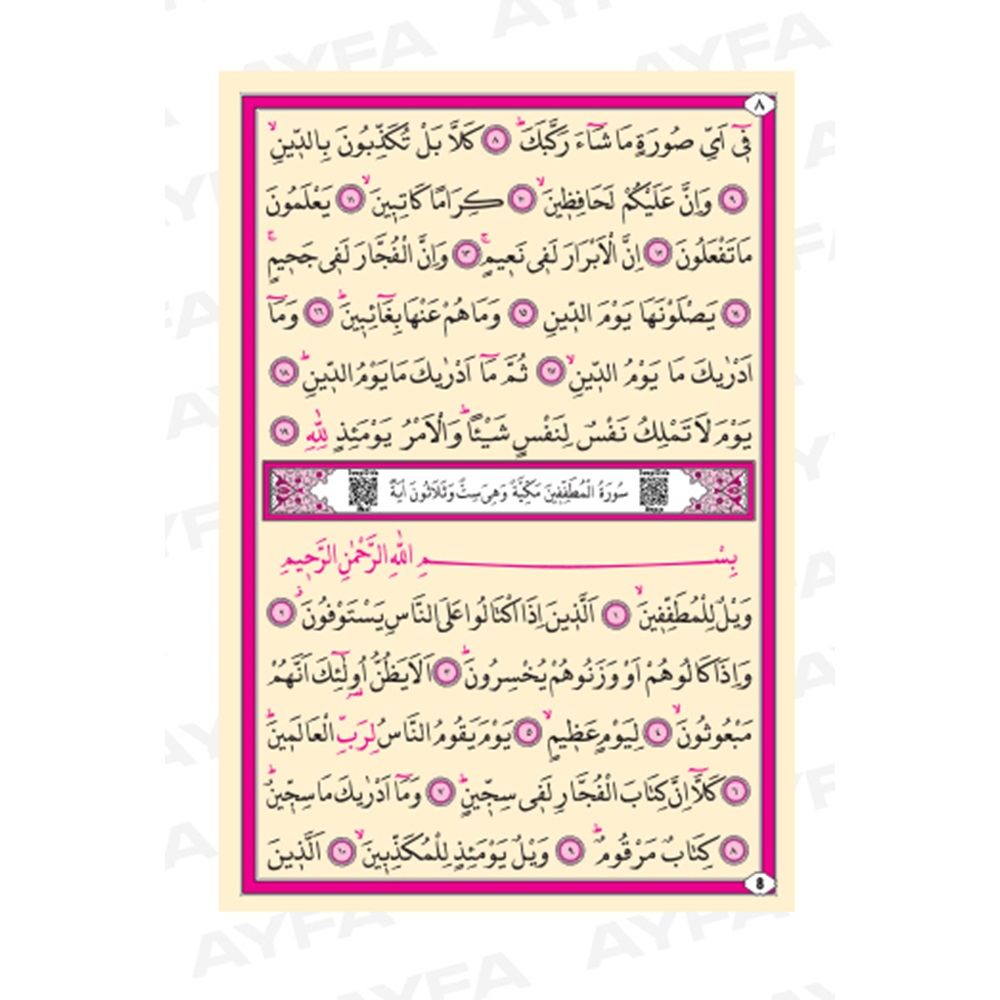 AYFA AYFA AYFA
٨
فٓى اَىِّ صُورَةٍ مَا شَٓاءَ رَكَّبَكَۜ ﴿٨﴾ كَلَّا بَلْ تُكَذِّبُونَ بِالدّٖينِۙ
﴿٩﴾ وَاِنَّ عَلَيْكُمْ لَحَافِظٖينَۙ ﴿١٠﴾ كِرَامًا كَاتِبٖينَۙ ﴿١١﴾ يَعْلَمُونَ
مَا تَفْعَلُونَ ﴿١٢﴾ اِنَّ الْاَبْرَارَ لَفٖى نَعٖيمٍۚ ﴿١٣﴾ وَاِنَّ الْفُجَّارَ لَفٖى جَحٖيمٍۚ
﴿١٤﴾ يَصْلَوْنَهَا يَوْمَ الدّٖينِ ﴿١٥﴾ وَمَا هُمْ عَنْهَا بِغَٓائِبٖينَۜ ﴿١٦﴾ وَمَٓا
اَدْرٰيكَ مَا يَوْمُ الدّٖينِۙ ﴿١٧﴾ ثُمَّ مَٓا اَدْرٰيكَ مَا يَوْمُ الدّٖينِۜ ﴿١٨﴾
يَوْمَ لَا تَمْلِكُ نَفْسٌ لِنَفْسٍ شَيْئًاۜ وَالْاَمْرُ يَوْمَئِذٍ لِلّٰهِ ﴿١٩﴾
سُورَةُ الْمُطَفِّفٖينَ مَكِّيَّةٌ وَهِىَ سِتٌّ وَثَلَاثُونَ اٰيَةً
بِسْمِ اللّٰهِ الرَّحْمٰنِ الرَّحٖيمِ
وَيْلٌ لِلْمُطَفِّفٖينَۙ ﴿١﴾ اَلَّذٖينَ اِذَا اكْتَالُوا عَلَى النَّاسِ يَسْتَوْفُونَۘ ﴿٢﴾
وَاِذَا كَالُوهُمْ اَوْ وَزَنُوهُمْ يُخْسِرُونَۜ ﴿٣﴾ اَلَا يَظُنُّ اُو۬لٰٓئِكَ اَنَّهُمْ
مَبْعُوثُونَۙ ﴿٤﴾ لِيَوْمٍ عَظٖيمٍۙ ﴿٥﴾ يَوْمَ يَقُومُ النَّاسُ لِرَبِّ الْعَالَمٖينَۜ
﴿٦﴾ كَلَّٓا اِنَّ كِتَابَ الْفُجَّارِ لَفٖى سِجّٖينٍۜ ﴿٧﴾ وَمَٓا اَدْرٰيكَ مَا سِجّٖينٌۜ
﴿٨﴾ كِتَابٌ مَرْقُومٌۜ ﴿٩﴾ وَيْلٌ يَوْمَئِذٍ لِلْمُكَذِّبٖينَۙ ﴿١٠﴾ اَلَّذٖينَ
8
AYFA AYFA AYFA